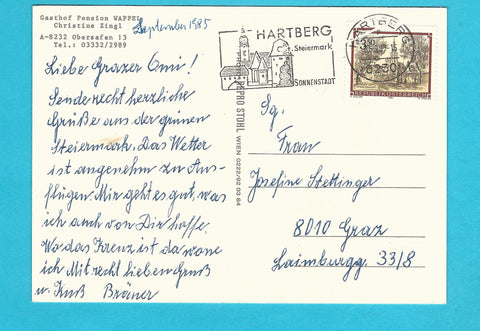 Gasthof Pension WAPPEL
Christine Zingl
A-8232 Obersafen 13
Tel.: 03332/2989
September 1985
Liebe Grazer Omi!
Sende recht herzliche
Grüße aus der grünen
Steiermark. Das Wetter
ist angenehm zu Aus-
flügen. Mir geht es gut, was
ich auch von Dir hoffe.
Wo das Kreuz ist da wohne
ich. Mit recht lieben Gruß
u. Kuß
HARTBERG
Steiermark
SONNENSTADT
HARTBERG
8230
REPUBLIK ÖSTERREICH
PEPRO STOHL WIEN 0222/92 03 64
Sg.
Frau
Josefine Stettinger
8010 Graz
Laimburgg. 33/8